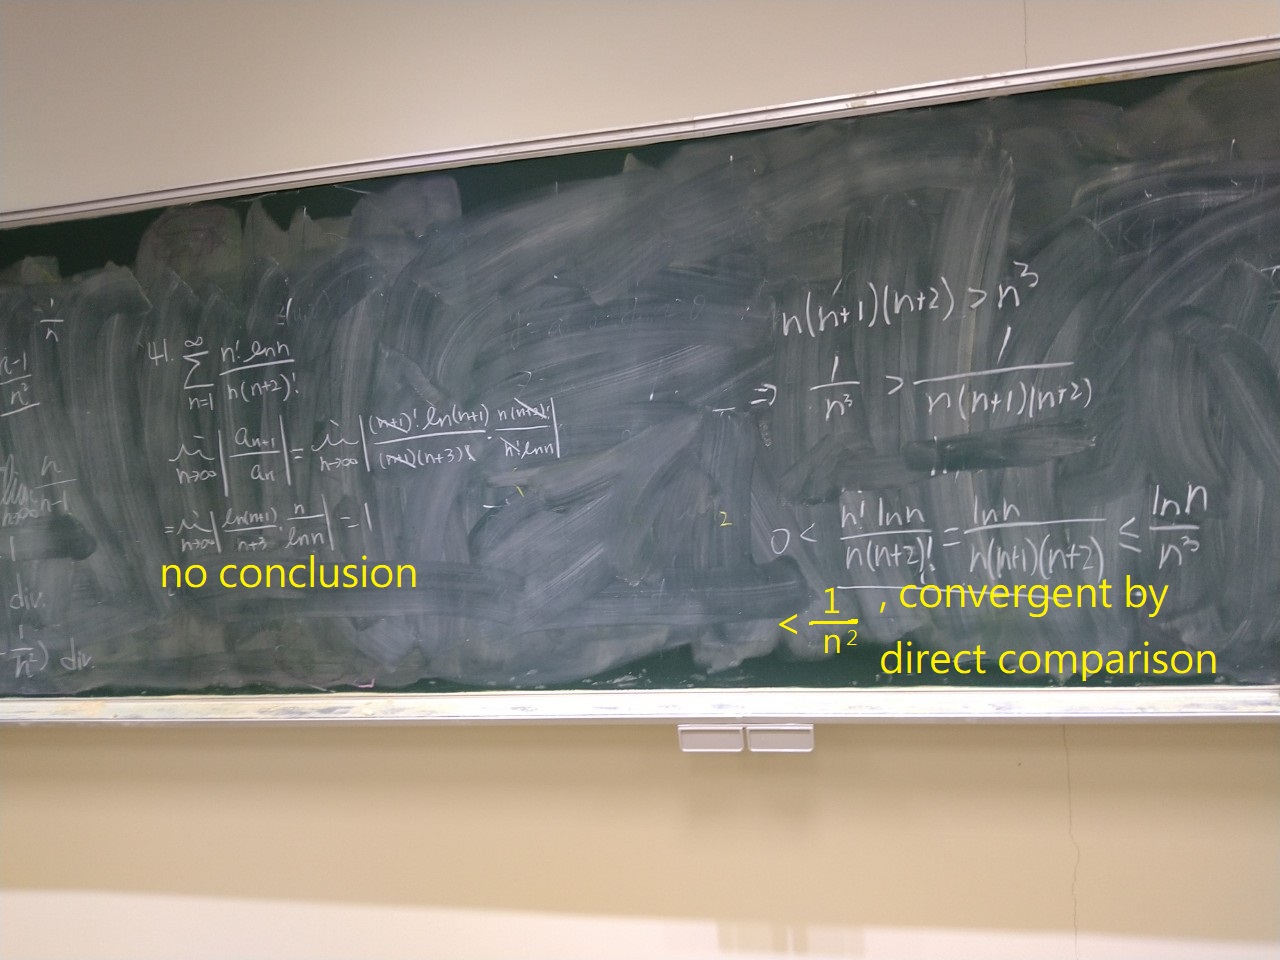 1/n
n-1/n²
n/n-1
1
div.
1/n²) div.
41. ∞ Σ n=1 n! ln n / n(n+2)!
lim n→∞ |aₙ₊₁/aₙ| = lim n→∞ |(n+1)! ln(n+1) / (n+1)(n+3)! · n(n+2)! / n! ln n|
= lim n→∞ |ln(n+1)/n+3 · n/ln n| = 1
no conclusion
n(n+1)(n+2) > n³
⇒ 1/n³ > 1/n(n+1)(n+2)
2
0 < n! ln n / n(n+2)! = ln n / n(n+1)(n+2) ≤ ln n / n³
< 1/n² , convergent by
direct comparison